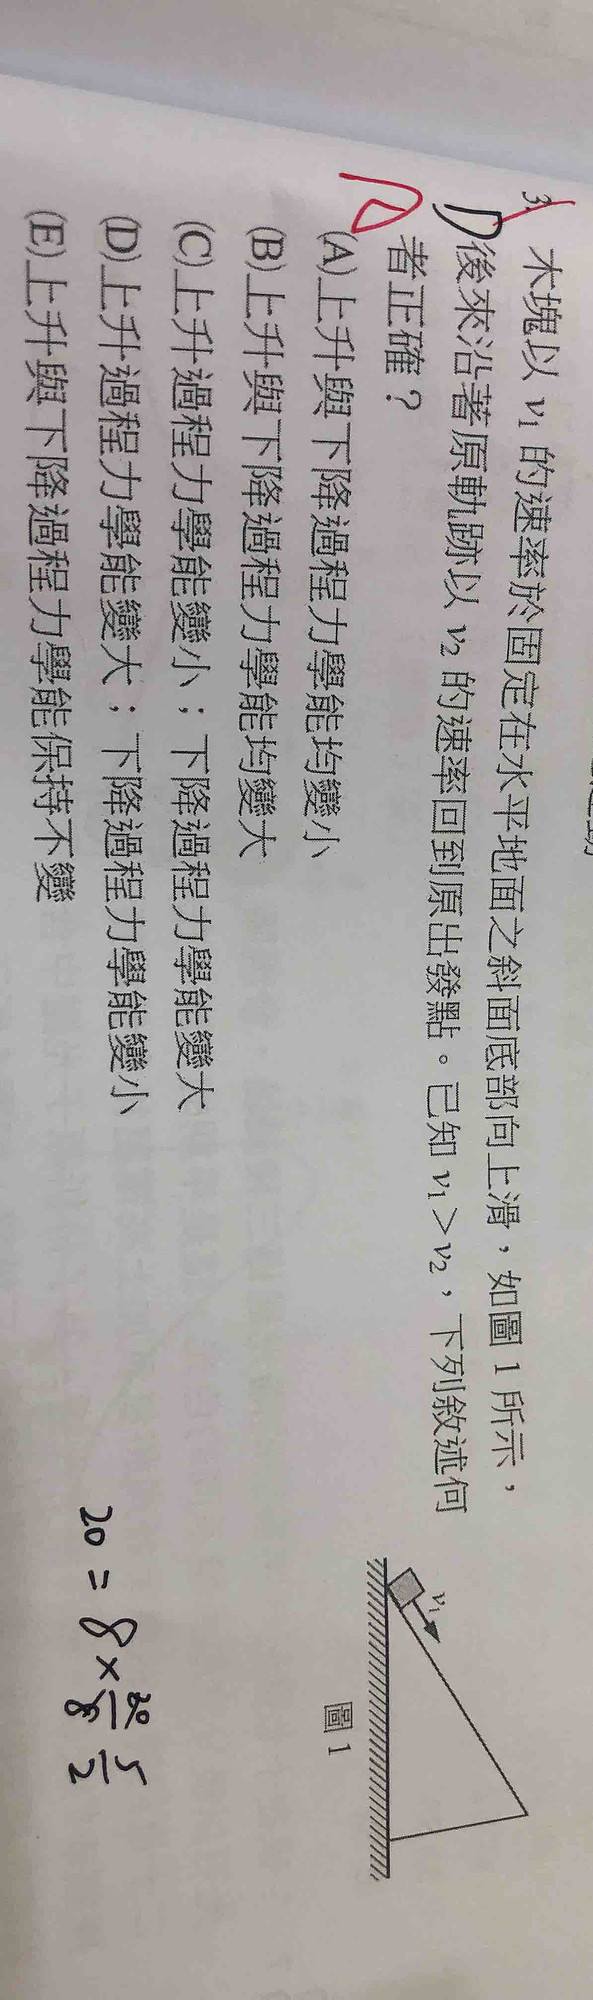 3. 木塊以 v₁ 的速率於固定在水平地面之斜面底部向上滑，如圖 1 所示，
D 後來沿著原軌跡以 v₂ 的速率回到原出發點。已知 v₁＞v₂，下列敘述何
者正確？
A
(A)上升與下降過程力學能均變小
(B)上升與下降過程力學能均變大
(C)上升過程力學能變小；下降過程力學能變大
(D)上升過程力學能變大；下降過程力學能變小
(E)上升與下降過程力學能保持不變
v₁
圖 1
20 = 8 × 20/8 5/2